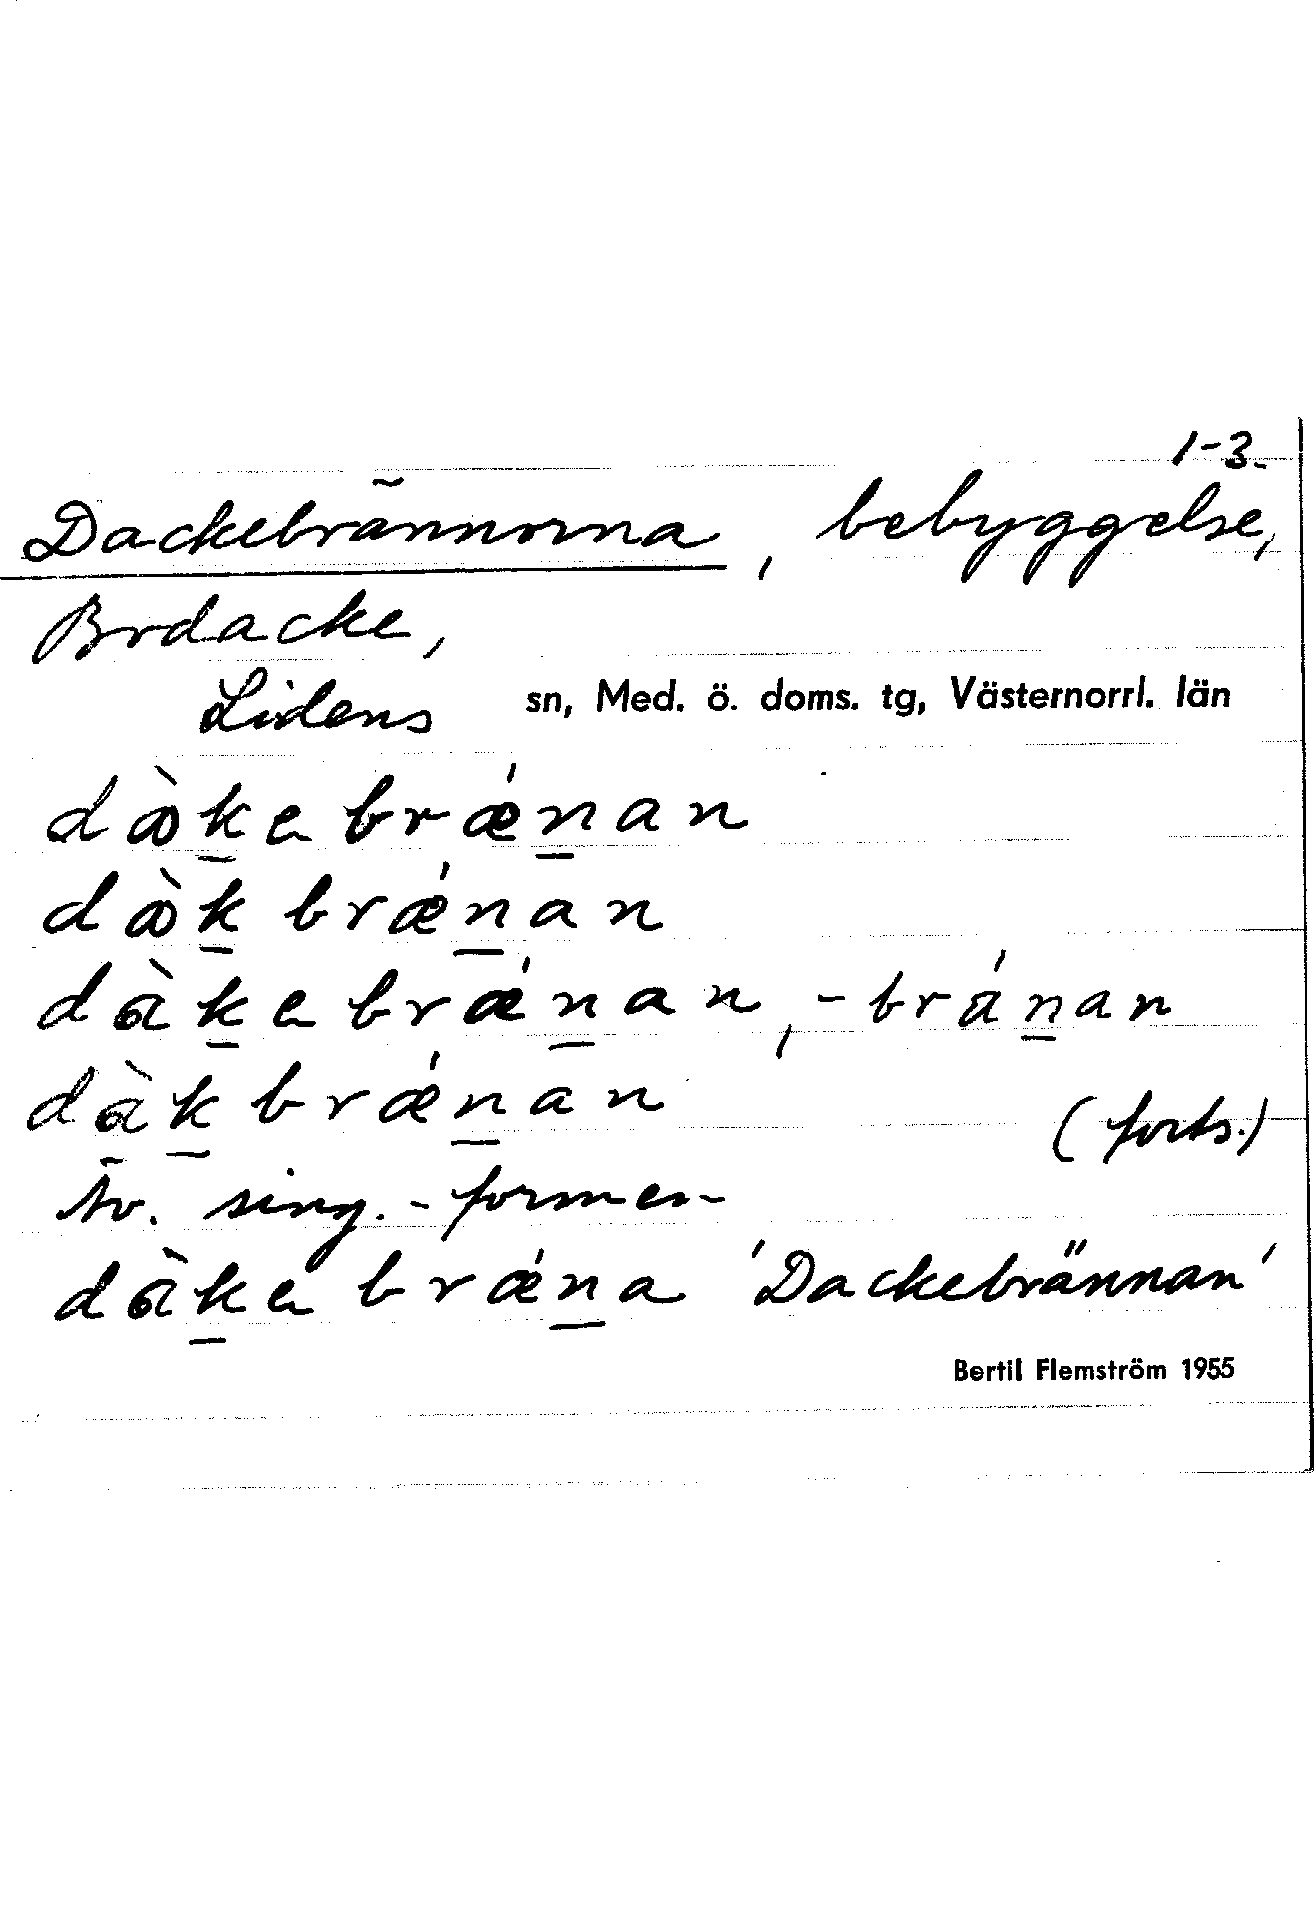 1-3.
Dackebrännorna, bebyggelse,
Brdacke,
Lidens sn, Med. ö. doms. tg, Västernorrl. län
dàkebrǽnan
dàkbrǽnan
dàkebrǽnan, -bránan
dàkbrǽnan (forts.)
Äv. sing.-formen
dàkebrǽna 'Dackebrännan'
Bertil Flemström 1955